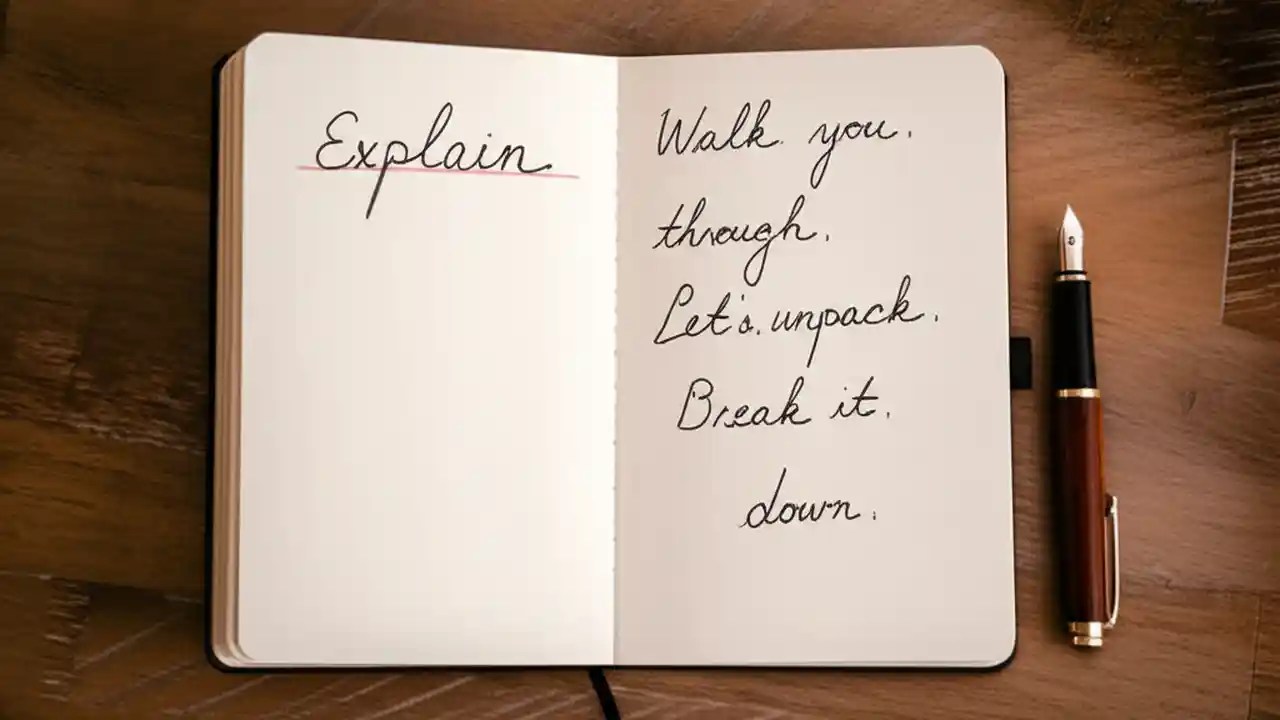 Explain.
Walk you.
through.
Let's. unpack.
Break it.
down.